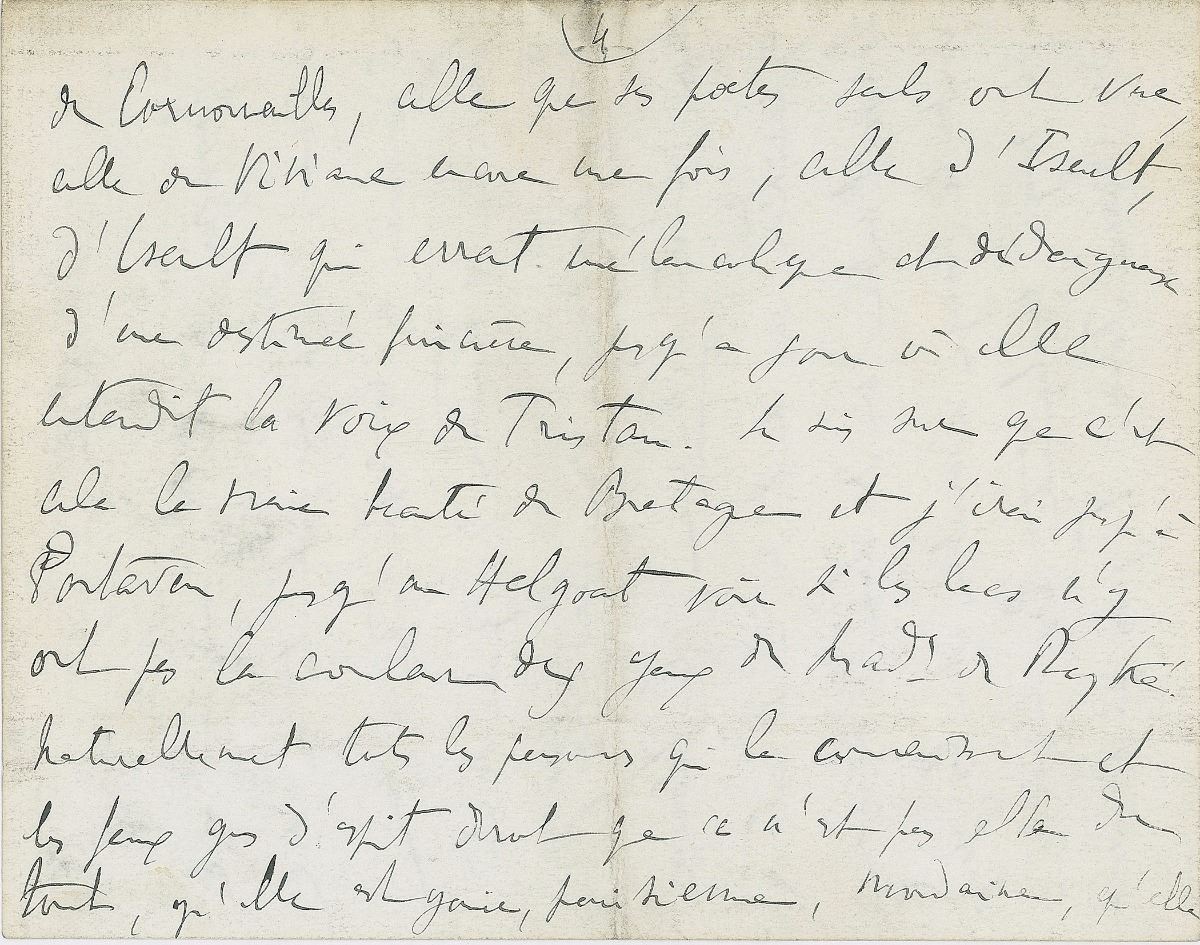 4
de Cornouailles, celle que ses poètes seuls ont vue,
celle de Viviane encore une fois, celle d'Iseult,
d'Iseult qui errait mélancolique et dédaigneuse
d'une destinée princière, jusqu'au jour où elle
entendit la voix de Tristan. Je suis sûr que c'est
cela la vraie beauté de Bretagne et j'irai jusqu'à
Pontaven, jusqu'au Helgoat voir si les lacs n'y
ont pas la couleur des yeux de Made de
naturellement toutes les personnes qui la connaissent et
les faux gens d'esprit diront que ce n'est pas elle du
tout, qu'elle est gaie, parisienne, mondaine, qu'elle